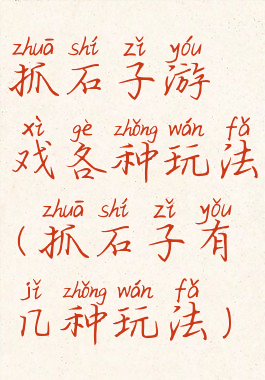 zhuā shí zǐ yóu
抓石子游
xì gè zhǒng wán fǎ
戏各种玩法
zhuā shí zǐ yǒu
（抓石子有
jǐ zhǒng wán fǎ
几种玩法）